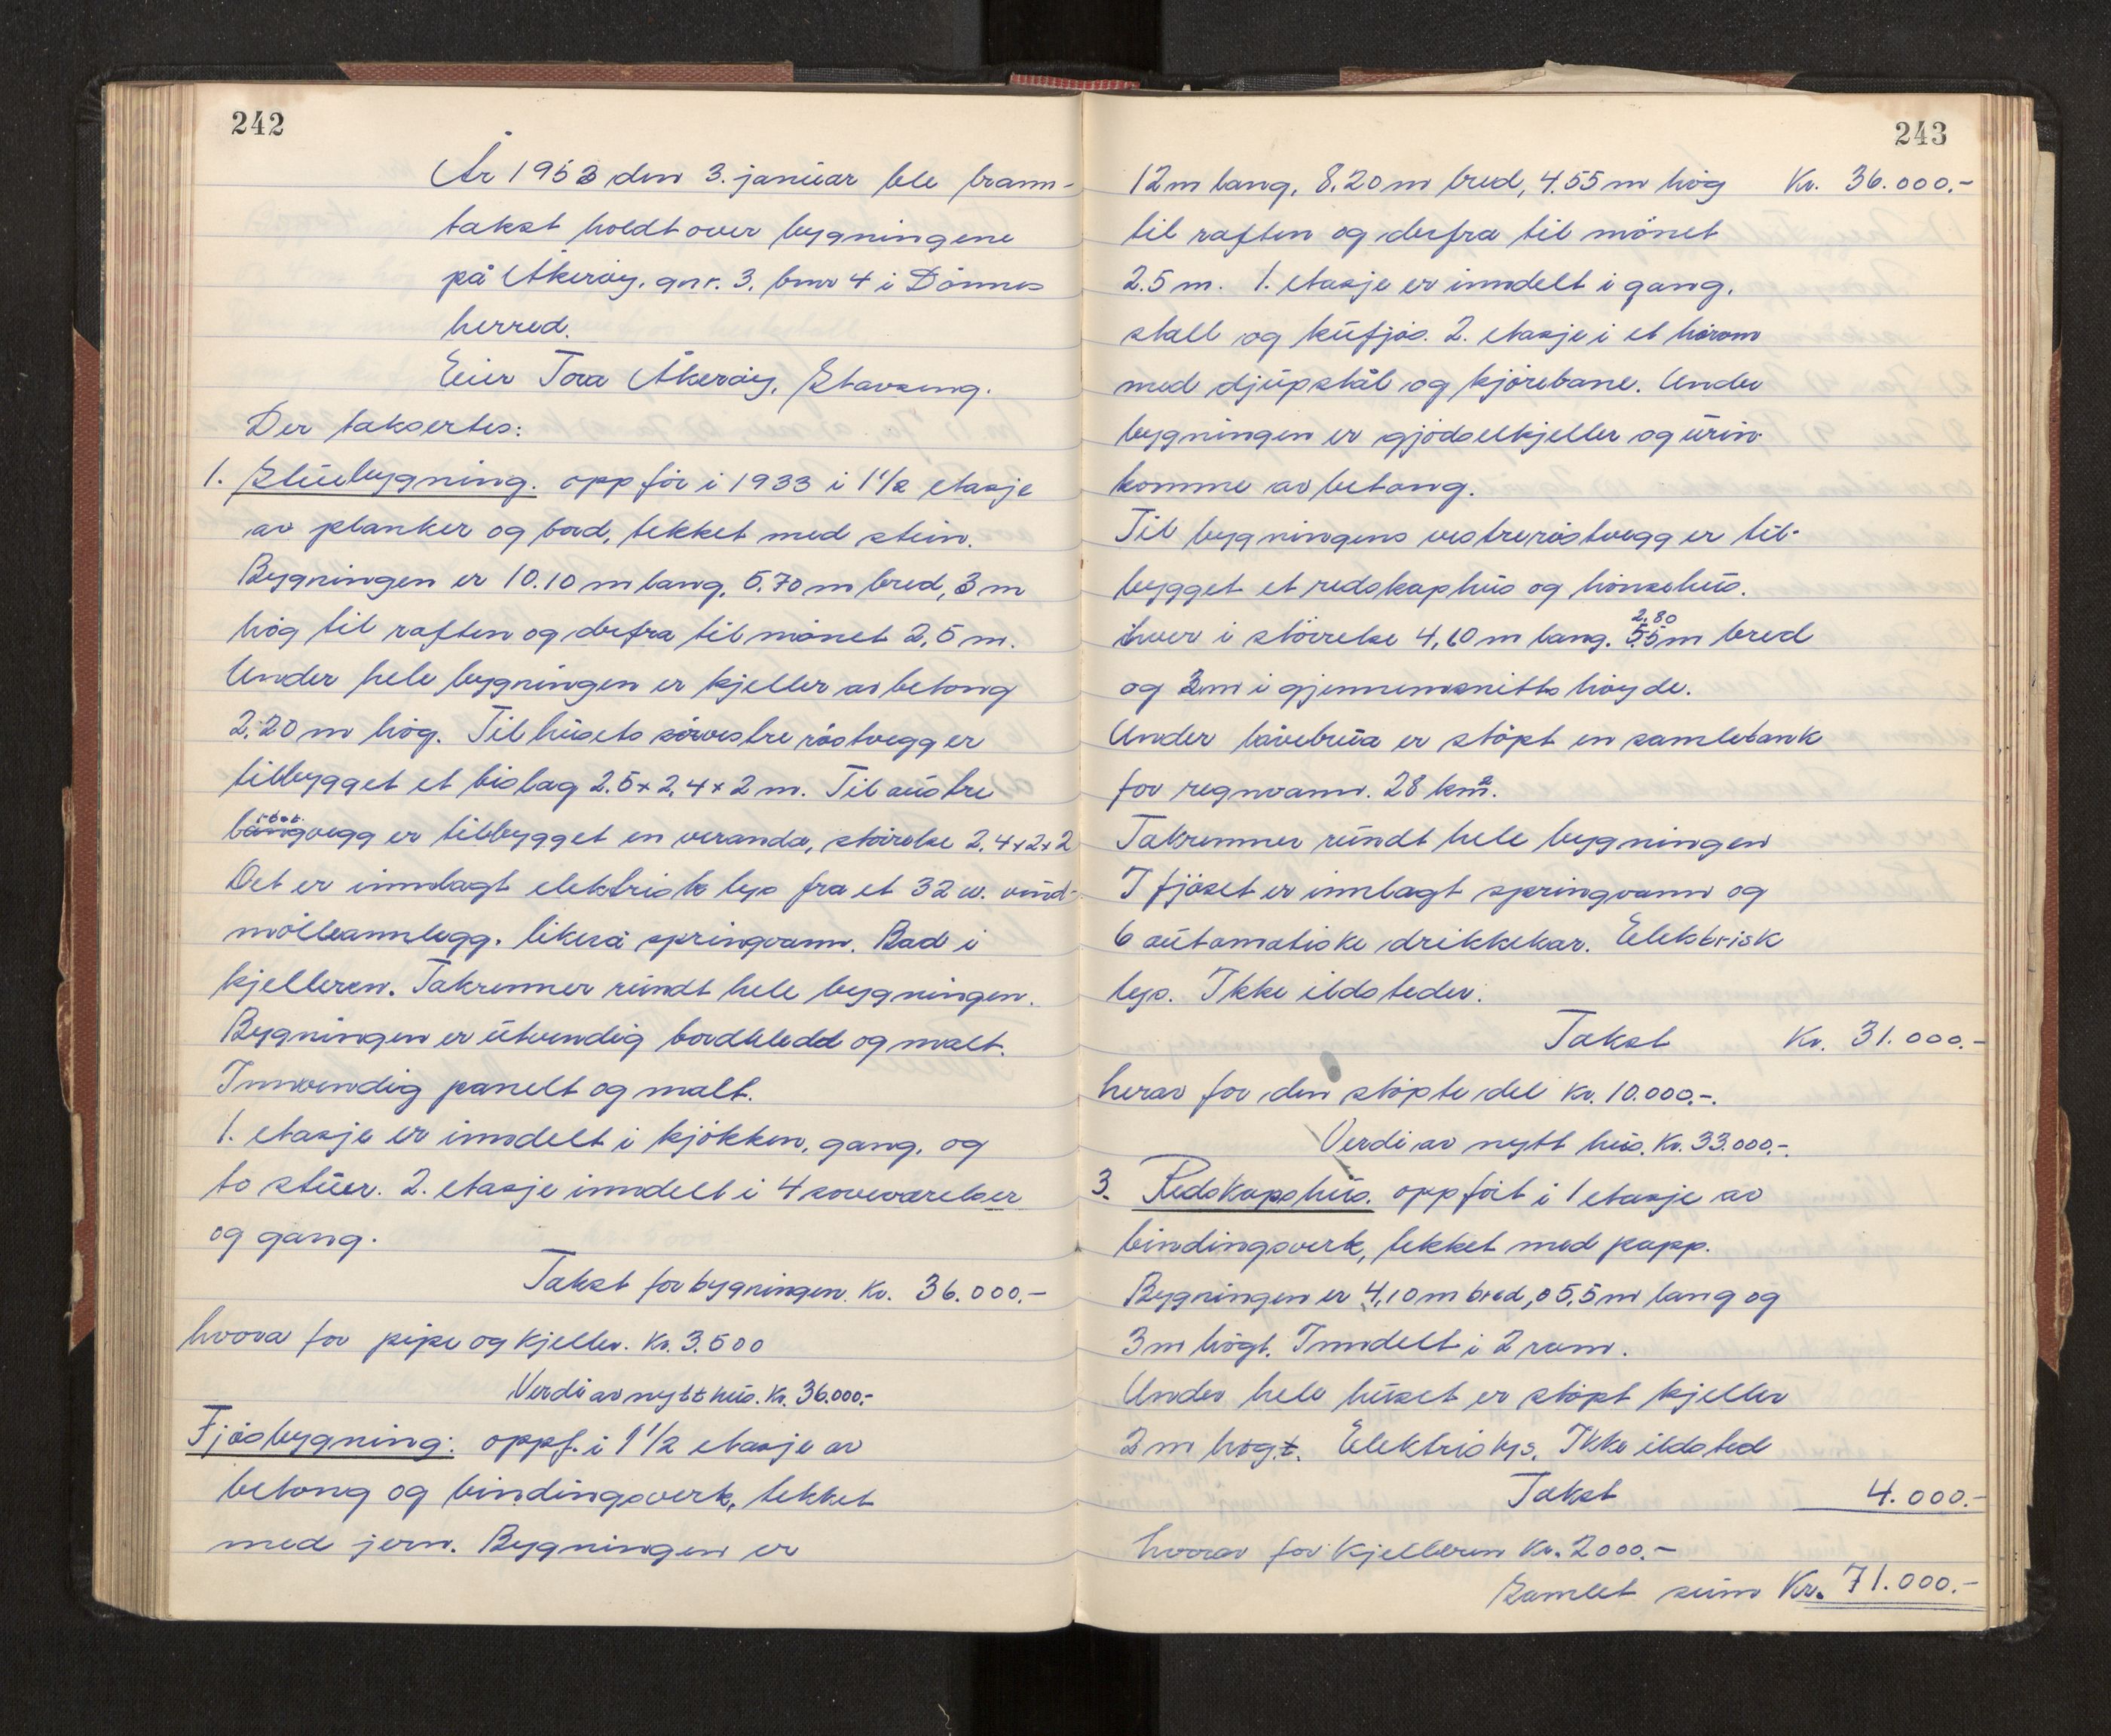 242
År 1953 den 3. januar ble brann-
takst holdt over bygningene
på Åkerøy, gnr. 3, bnr 4 i Dönnes
herred.
Eier Tora Åkerøy, Stavseng.
Der taksertes:
1. Stuebygning. oppför i 1933 i 1 1/2 etasje
av planker og bord, tekket med stein.
Bygningen er 10.10 m lang, 5.70 m bred, 3 m
hög til raften og derfra til mönet 2,5 m.
Under hele bygningen er kjeller av betong
2.20 m hög. Til husets sörvestre röstvegg er
tilbygget et bislag 2.5 x 2,4 x 2 m. Til austre
langvegg er tilbygget en veranda, störrelse 2,4 x 2 x 2
Det er innlagt elektrisk lys fra et 32 w. vind-
mölleannlegg. likeså springvann. Bad i
kjelleren. Takrenner rundt hele bygningen.
Bygningen er utvendig bordkledd og malt.
Innvendig panelt og malt.
1. etasje er inndelt i kjökken, gang, og
to stuer. 2. etasje inndelt i 4 soveværelser
og gang.
Takst for bygningen. Kr. 36.000.-
hvorav for pipe og kjeller. Kr. 3.500
Verdi av nytt hus. Kr. 36.000.-
Fjösbygning: oppf. i 1 1/2 etasje av
betong og bindingsverk, tekket
med jern. Bygningen er
243
12 m lang, 8.20 m bred, 4.55 m hög Kr. 36.000.-
til raften og derfra til mönet
2.5 m. 1. etasje er inndelt i gang,
stall og kufjös. 2. etasje i et hörom
med djupstål og kjörebane. Under
bygningen er gjödselkjeller og urin-
komme av betong.
Til bygningens vestre röstvegg er til-
bygget et redskaphus og hönsehus.
hver i störrelse 4,10 m lang. 2.80 5.5 m bred
og 2 m i gjennemsnitts höyde.
Under låvebrua er stöpt en samletank
for regnvann. 28 km².
Takrenner rundt hele bygningen
I fjöset er innlagt springvann og
6 automatiske drikkekar. Elektrisk
lys. Ikke ildsteder.
Takst Kr. 31.000.-
herav for den stöpte del Kr. 10.000.-.
Verdi av nytt hus. Kr. 33.000.-.
3. Redskapshus. oppfört i 1 etasje av
bindingsverk, tekket med papp.
Bygningen er 4,10 m bred, 5,5 m lang og
3 m högt. Inndelt i 2 rom.
Under hele huset er stöpt kjeller
2 m högt. Elektris lys. Ikke ildsted
Takst 4.000.-
hvorav for kjelleren Kr. 2000.-
Samlet sum Kr. 71.000.-